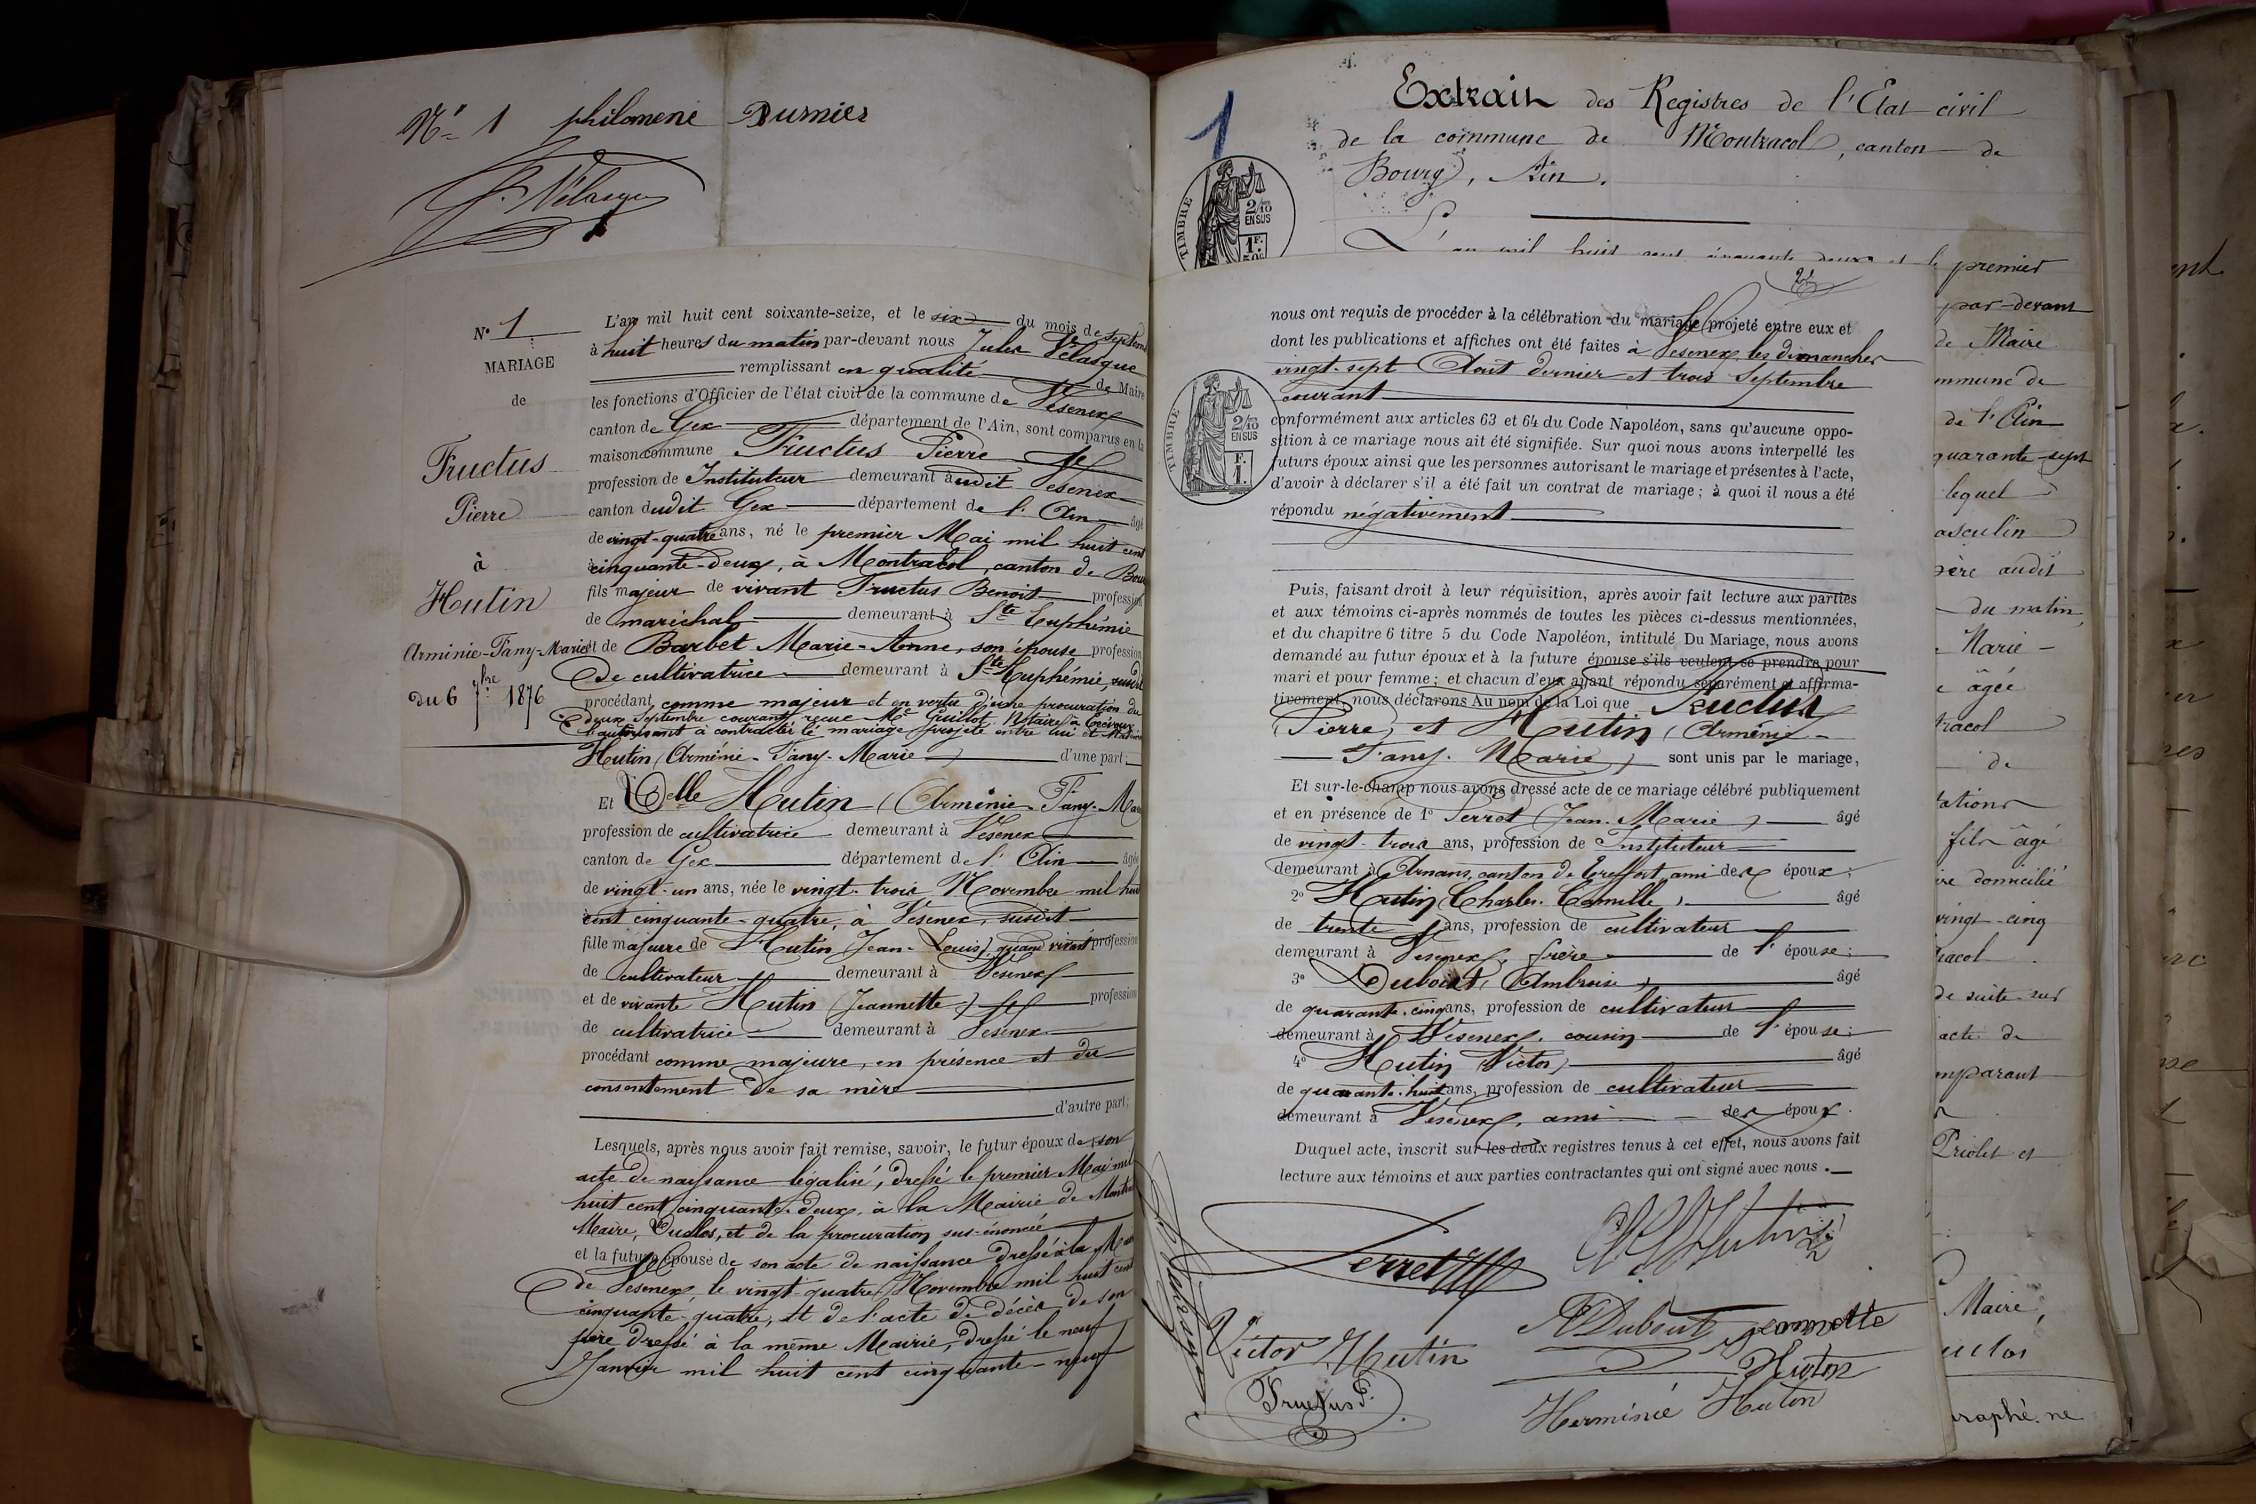 N° 1 philomene Dumier
J. Vélasque
N° 1
MARIAGE
de
Fructus
Pierre
à
Hutin
Arminie-Fany-Marie
du 6 7bre 1876
L'an mil huit cent soixante-seize, et le six du mois de Septem
à huit heures du matin par-devant nous Jules Vélasque
remplissant en qualité de Maire
les fonctions d'Officier de l'état civil de la commune de Vésenex
canton de Gex département de l'Ain, sont comparus en la
maison commune Fructus Pierre
profession de Instituteur demeurant audit Vesenex
canton dudit Gex département de l'Ain âgé
de vingt-quatre ans, né le premier Mai mil huit cent
cinquante-deux, à Montracol, canton de Bou
fils majeur de vivant Fructus Benoit profession
de maréchal demeurant à Ste Euphémie
et de Barbet Marie-Anne, son épouse profession
de cultivatrice demeurant à Ste Euphémie, susdit
procédant comme majeur et en vertu d'une procuration du
deux Septembre courant, reçue Me Guillot, Notaire à
l'autorisant à contracter le mariage projeté entre lui et
Hutin (Arménie-Fany-Marie) d'une part;
Et Delle Hutin (Arménie-Fany-Mar
profession de cultivatrice demeurant à Vesenex
canton de Gex département de l'Ain âgée
de vingt-un ans, née le vingt-trois Novembre mil huit
cent cinquante-quatre, à Vesenex, susdit
fille majeure de Hutin (Jean-Louis) quand vivant profession
de cultivateur demeurant à Vesenex
et de vivante Hutin (Jeannette) profession
de cultivatrice demeurant à Vesenex
procédant comme majeure, en présence et du
consentement de sa mère
d'autre part;
Lesquels, après nous avoir fait remise, savoir, le futur époux de son
acte de naissance légalisé, dressé le premier Mai mil
huit cent cinquante-deux, à la Mairie de Montra
Maire, Duclos, et de la procuration sus-énoncée
et la future épouse de son acte de naissance dressé à la Mai
de Vesenex le vingt-quatre Novembre mil huit cent
cinquante-quatre, et de l'acte de décès de son
père dressé à la même Mairie, dressé le neuf
Janvier mil huit cent cinquante-neuf
1
Extrait des Registres de l'Etat civil
de la commune de Montracol, canton de
Bourg, Ain.
TIMBRE
2/10
EN SUS
1F.
50c
L'an mil huit cent cinquante deux et le premier
nous ont requis de procéder à la célébration du mariage projeté entre eux et
dont les publications et affiches ont été faites à Vesenex les dimanches
vingt-sept Août dernier et trois Septembre
courant
TIMBRE
2/10
EN SUS
F.
1.
conformément aux articles 63 et 64 du Code Napoléon, sans qu'aucune oppo-
sition à ce mariage nous ait été signifiée. Sur quoi nous avons interpellé les
futurs époux ainsi que les personnes autorisant le mariage et présentes à l'acte,
d'avoir à déclarer s'il a été fait un contrat de mariage; à quoi il nous a été
répondu négativement
Puis, faisant droit à leur réquisition, après avoir fait lecture aux parties
et aux témoins ci-après nommés de toutes les pièces ci-dessus mentionnées,
et du chapitre 6 titre 5 du Code Napoléon, intitulé Du Mariage, nous avons
demandé au futur époux et à la future épouse s'ils veulent se prendre pour
mari et pour femme; et chacun d'eux ayant répondu séparément et affirma-
tivement, nous déclarons Au nom de la Loi que Fructus
(Pierre) et Hutin (Arménie-
Fany-Marie) sont unis par le mariage,
Et sur-le-champ nous avons dressé acte de ce mariage célébré publiquement
et en présence de 1° Perret (Jean-Marie) âgé
de vingt-trois ans, profession de Instituteur
demeurant à Arnans, canton de Treffort, ami des époux;
2° Hutin (Charles-Camille) âgé
de trente ans, profession de cultivateur
demeurant à Vesenex, frère de l'épouse;
3° Dubout (Ambroise) âgé
de quarante-cinq ans, profession de cultivateur
demeurant à Vesenex, cousin de l'épouse;
4° Hutin (Victor) âgé
de quarante-huit ans, profession de cultivateur
demeurant à Vesenex, ami des époux.
Duquel acte, inscrit sur les deux registres tenus à cet effet, nous avons fait
lecture aux témoins et aux parties contractantes qui ont signé avec nous.
Perret JM
Hutin
Victor Hutin
A Dubout
Jeannette
Hutin
Fructus P.
Herminie Hutin
par-devant
de Maire
mmune de
de l'Ain
quarante-sept
lequel
asculin
père audit
du matin,
Marie-
âgée
racol
de
tations
fils âgé
domicilié
vingt-cinq
racol
de suite sur
acte de
mparant
Priolet et
Maire,
uclos
araphé. ne